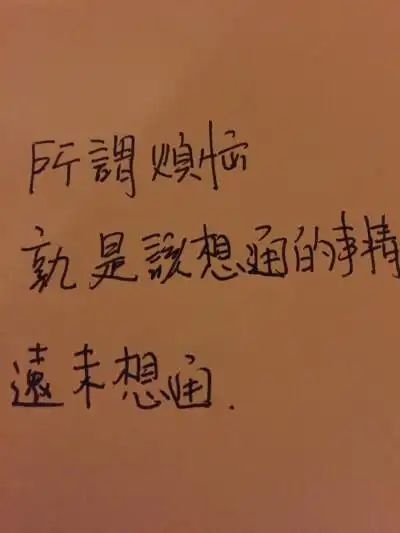 所謂煩惱
就是該想通的事情
遠未想通.